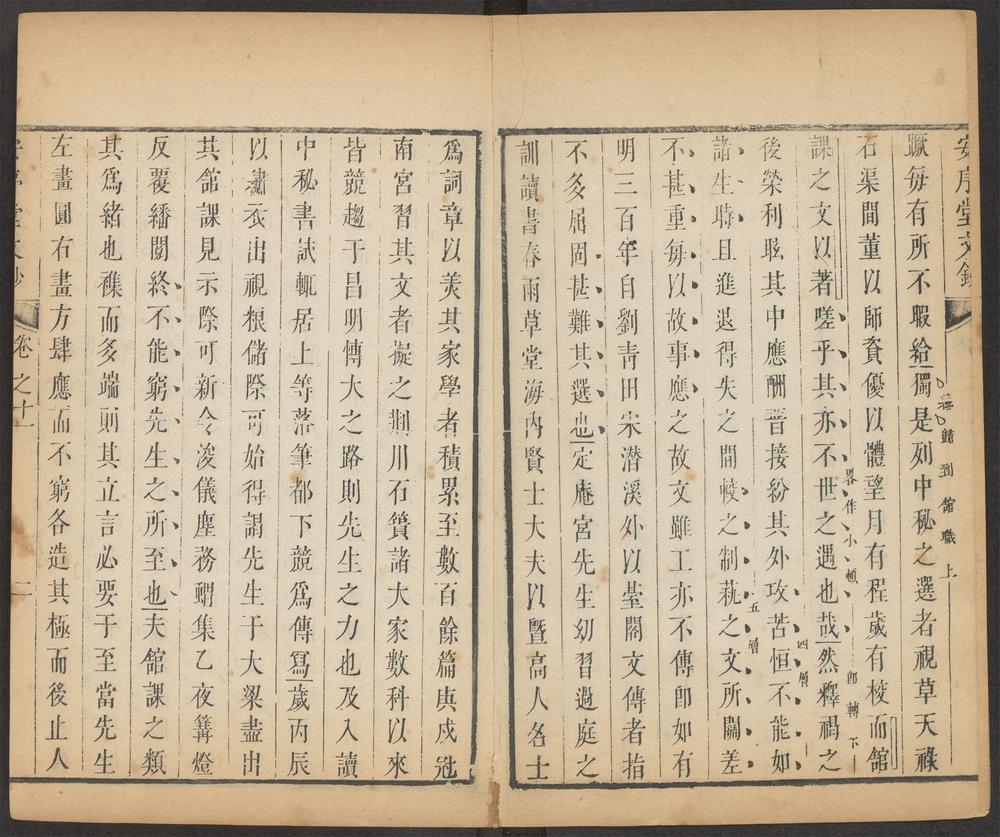 安序堂文鈔
蹶每有所不暇給獨是列中秘之選者視草天祿
蓋歸到館職上
石渠間董以師資優以體望月有程歲有校而館
課之文以著嗟乎其亦不世之遇也哉然釋褐之
畧作小頓即轉下
後榮利耽其中應酬晋接紛其外攻苦恒不能如
四層
諸生時且進退得失之間較之制蓺之文所關差
五層
不甚重每以故事應之故文雖工亦不傳卽如有
明三百年自劉青田宋潛溪外以臺閣文傳者指
不多屈固甚難其選也定庵宮先生幼習過庭之
訓讀書春雨草堂海內賢士大夫以曁高人名士
爲詞章以美其家學者積累至數百餘篇庚戍冠
南宮習其文者擬之荆川石簣諸大家數科以來
皆競趨于昌明愽大之路則先生之力也及入讀
中秘書試輒居上等落筆都下競爲傳寫歲丙辰
以繡衣出視糧儲際可始得謁先生于大梁盡出
其館課見示際可新令浚儀塵務蝟集乙夜篝燈
反覆繙閱終不能窮先生之所至也夫館課之類
其爲緒也襍而多端則其立言必要于至當先生
左畫圓右畫方肆應而不窮各造其極而後止人
安序堂文鈔 卷之十 二